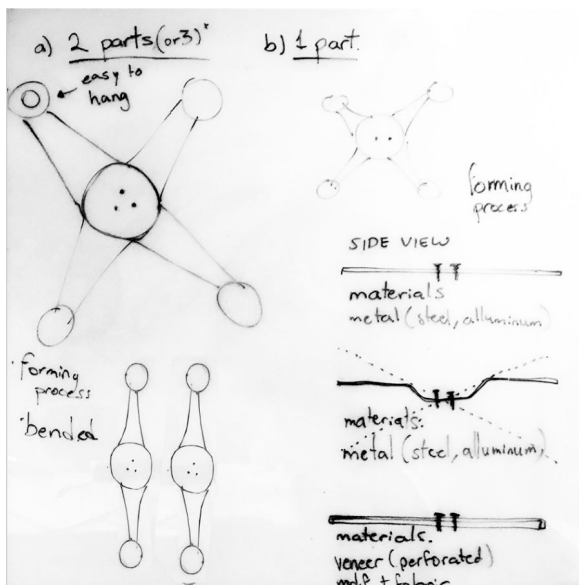 a) 2 parts (or 3)*
easy to
hang
forming
process
bended
b) 1 part.
forming
process
SIDE VIEW
materials
metal (steel, alluminum)
materials:
metal (steel, alluminum).
materials.
veneer (perforated)
mdf + fabric